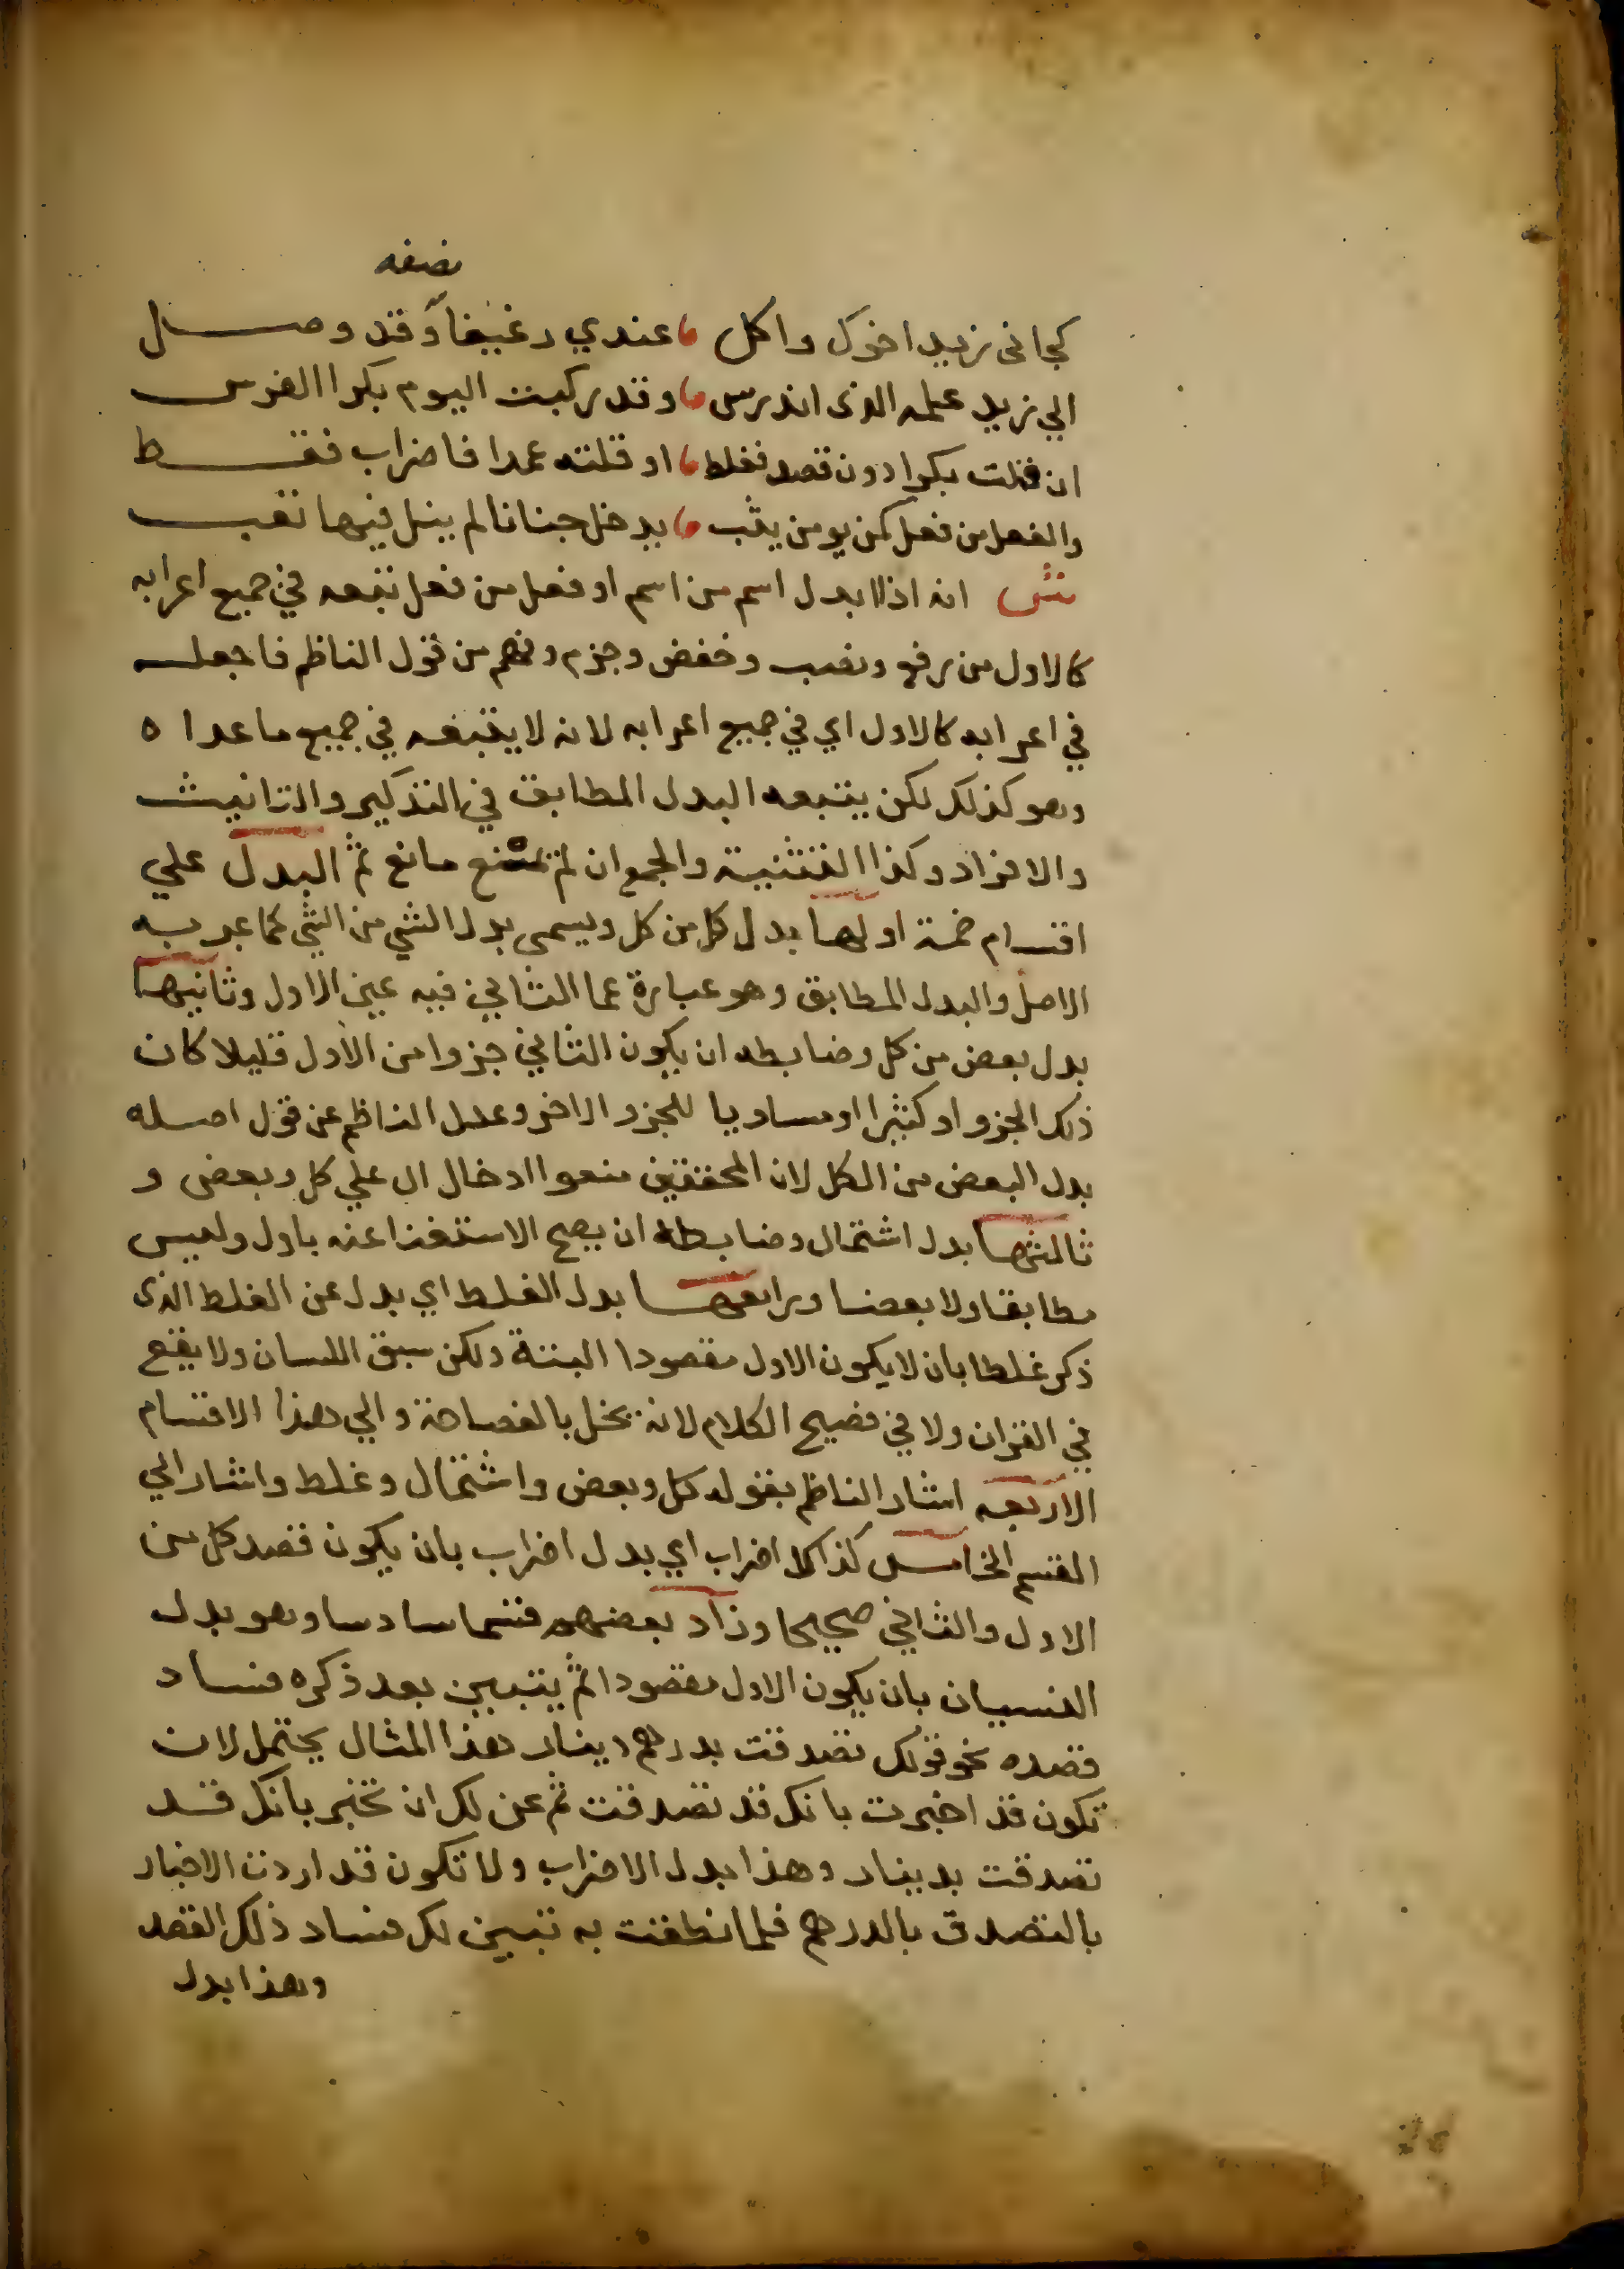 نصفه
كجاني زيد اخوك واكل عندي رغيفا وقد وصل
الي زيد علمه الذي اندرس وقد ركبت اليوم بكرا الفرس
ان قلت بكرا دون قصد فغلط او قلته عمدا فاضراب فقط
والفعل من فعل كمن يومن يثب يدخل جنانا لم ينل فيها تعب
ش انه اذا ابدل اسم من اسم او فعل من فعل تبعه في جميع اعرابه
كالاول من رفع ونصب وخفض وجزم وفهم من قول الناظم فاجعله
في اعرابه كالاول اي في جميع اعرابه لانه لا يتبعه في جميع ما عداه
وهو كذلك لكن يتبعه البدل المطابق في التذكير والتانيث
والافراد وكذا التثنية والجمع ان لم يمنع مانع ثم البدل علي
اقسام خمسة اولها بدل كل من كل ويسمى بدل الشي من الشي كما عبر به
الاصل والبدل المطابق وهو عبارة عما الثاني فيه عين الاول وثانيها
بدل بعض من كل وضابطه ان يكون الثاني جزوا من الاول قليلا كان
ذلك الجزو او كثيرا او مساويا للجزو الاخر وعدل الناظم عن قول اصله
بدل البعض من الكل لان المحققين منعوا ادخال ال علي كل وبعض و
ثالثها بدل اشتمال وضابطه ان يصح الاستغنا عنه باول وليس
مطابقا ولا بعضا ورابعها بدل الغلط اي بدل عن الغلط الذي
ذكر غلطا بان لا يكون الاول مقصودا البتة ولكن سبق اللسان ولا يقع
في القران ولا في فصيح الكلام لانه يخل بالفصاحة والي هذا الاقسام
الاربعه اشار الناظم بقوله كل وبعض واشتمال وغلط واشار الي
القسم الخامس كذاك اضراب اي بدل اضراب بان يكون قصد كل من
الاول والثاني صحيحا وزاد بعضهم قسما سادسا وهو بدل
النسيان بان يكون الاول مقصودا ثم يتبين بعد ذكره فساد
قصده نحو قولك تصدقت بدرهم دينار هذا المثال يحتمل لان
تكون قد اخبرت بانك قد تصدقت ثم عن لك ان تخبر بانك قد
تصدقت بدينار وهذا بدل الاضراب ولا تكون قد اردت الاخبار
بالتصدق بالدرهم فلما نطقت به تبين لك فساد ذلك القصد
وهذا بدل